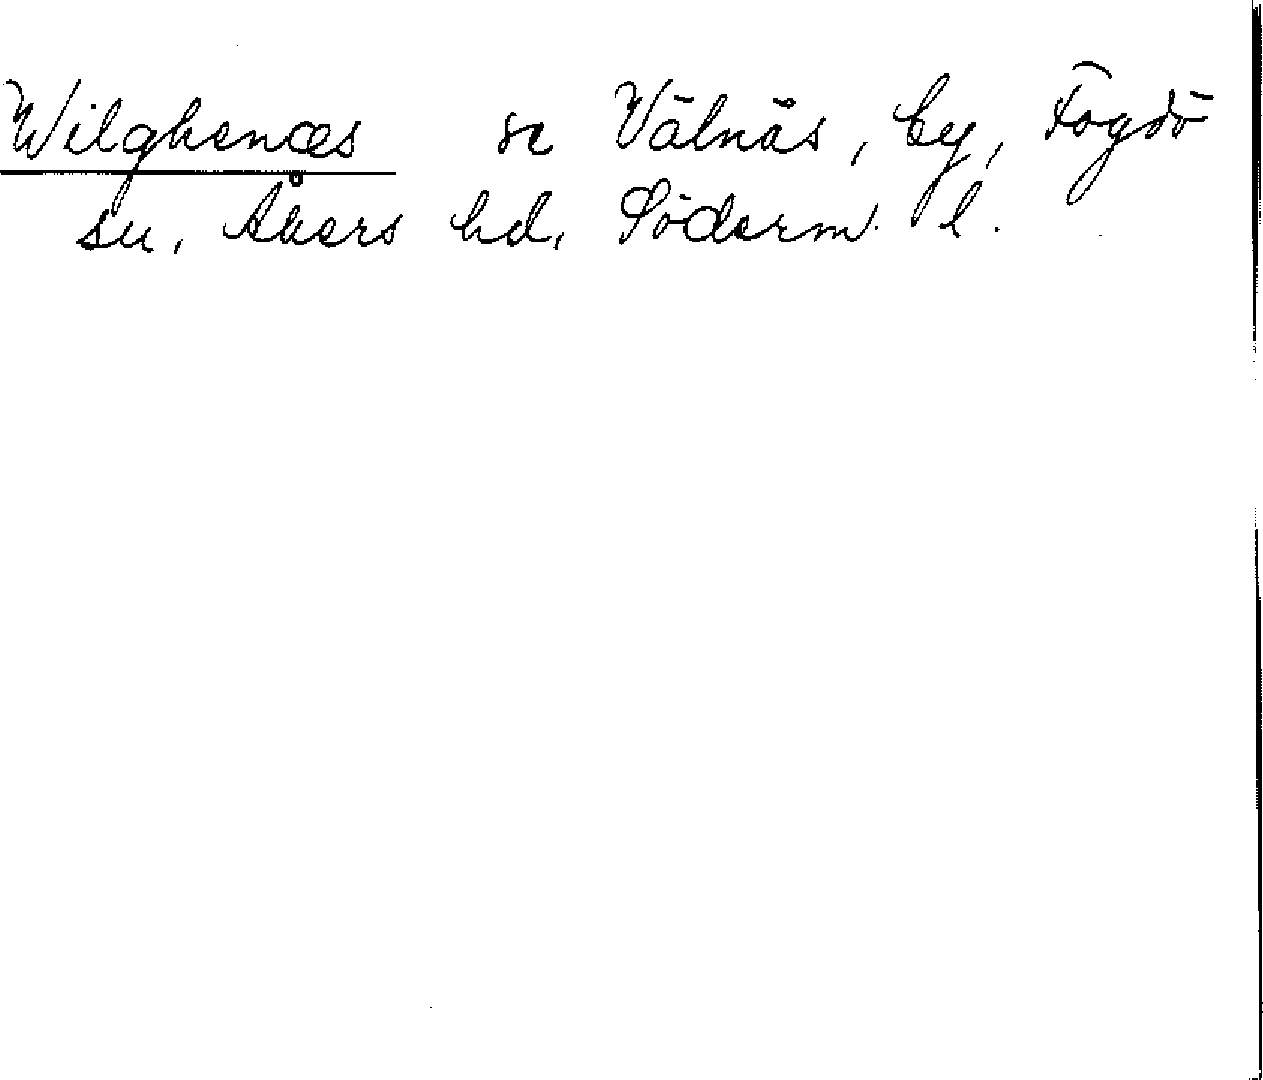 Wilghenæs se Välnäs, by, Fogdö
sn, Åkers hd, Söderm. l.